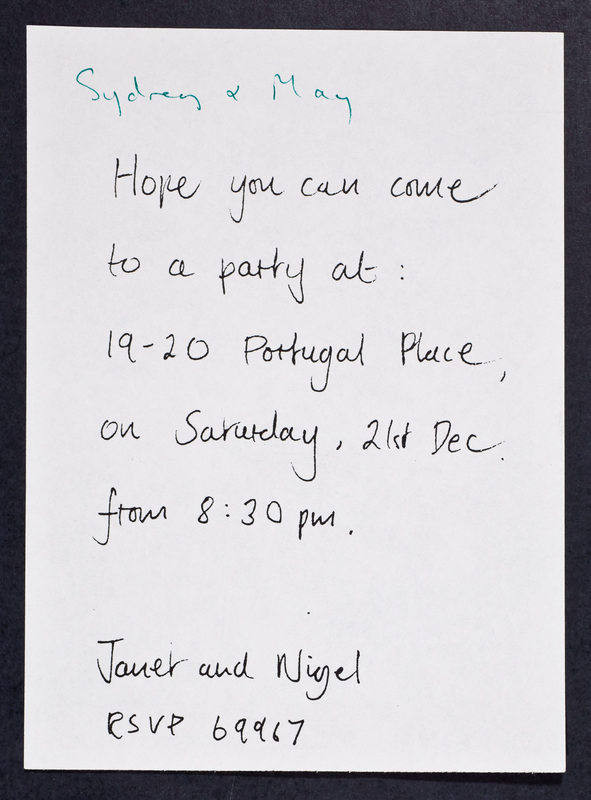 Sydney & May
Hope you can come
to a party at :
19-20 Portugal Place,
on Saturday, 21st Dec.
from 8:30 pm.
Janet and Nigel
RSVP 69967